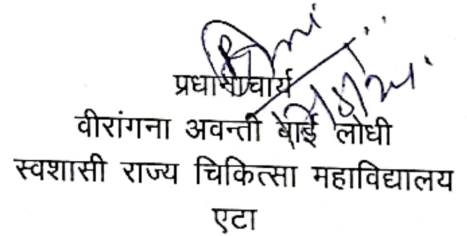 प्रधानाचार्य
वीरांगना अवन्ती बाई लोधी
स्वशासी राज्य चिकित्सा महाविद्यालय
एटा